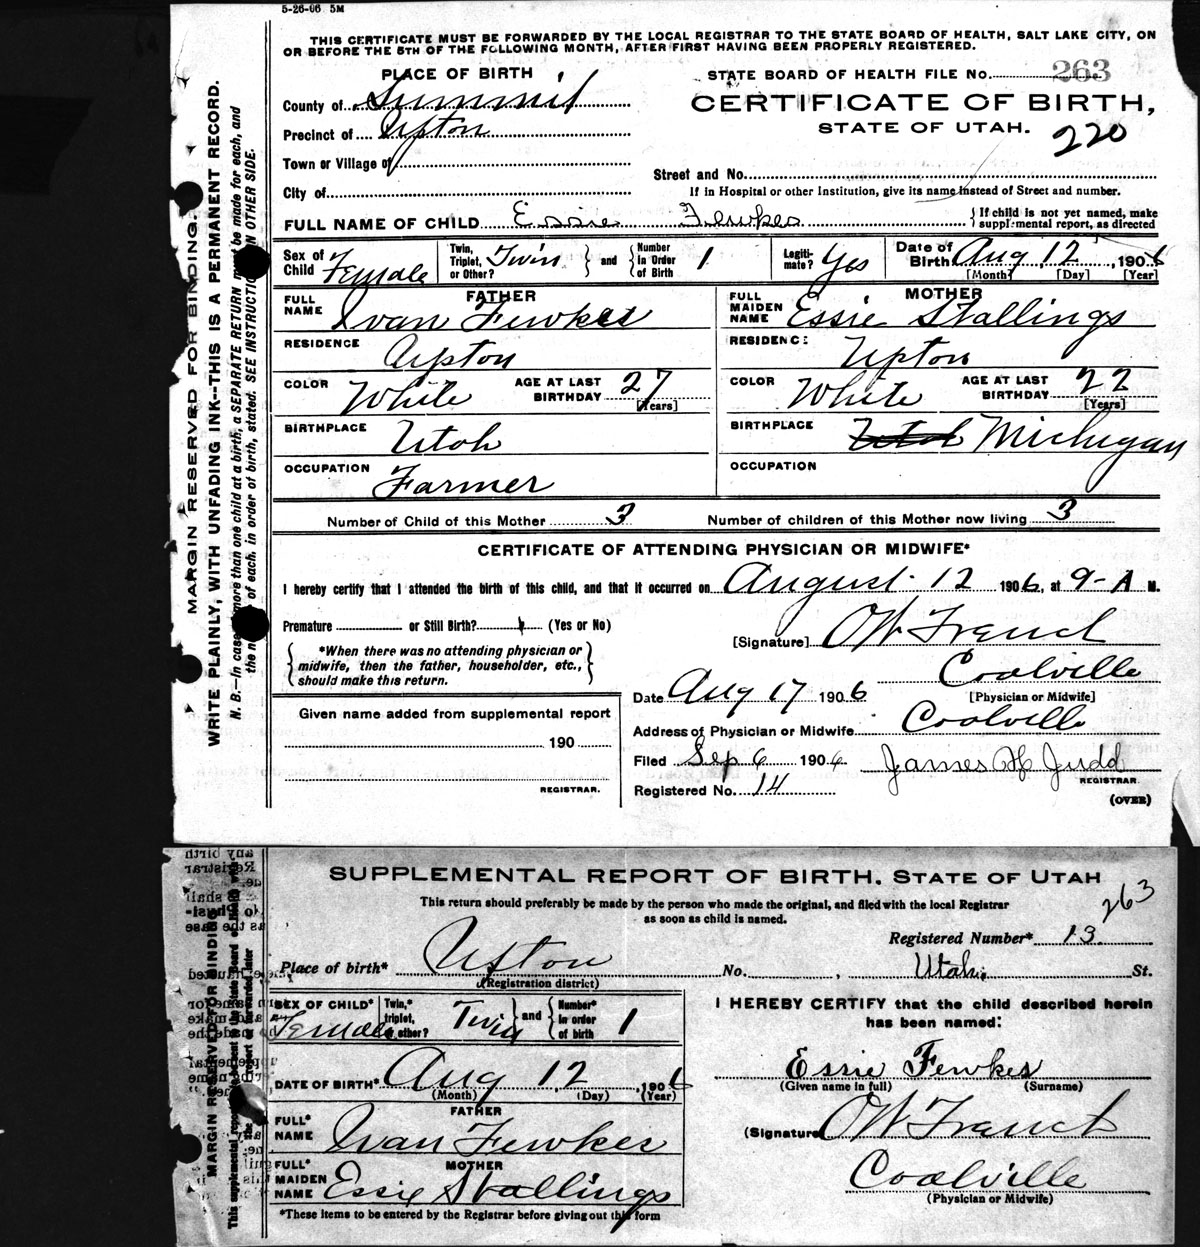 5-26-06 5M
THIS CERTIFICATE MUST BE FORWARDED BY THE LOCAL REGISTRAR TO THE STATE BOARD OF HEALTH, SALT LAKE CITY, ON
OR BEFORE THE 5TH OF THE FOLLOWING MONTH, AFTER FIRST HAVING BEEN PROPERLY REGISTERED.
PLACE OF BIRTH
County of Summit
Precinct of Upton
Town or Village of
City of
STATE BOARD OF HEALTH FILE No. 263
CERTIFICATE OF BIRTH,
STATE OF UTAH.
220
Street and No.
If in Hospital or other Institution, give its name instead of Street and number.
FULL NAME OF CHILD Essie Fewkes
{ If child is not yet named, make
supplemental report, as directed
Sex of Child Female
Twin, Triplet, or Other? Twin and Number in Order of Birth 1
Legitimate? Yes
Date of Birth Aug 12, 1906
[Month] [Day] [Year]
FATHER
FULL NAME Ivan Fewkes
RESIDENCE Upton
COLOR White AGE AT LAST BIRTHDAY 27 [Years]
BIRTHPLACE Utah
OCCUPATION Farmer
MOTHER
FULL MAIDEN NAME Essie Stallings
RESIDENCE Upton
COLOR White AGE AT LAST BIRTHDAY 22 [Years]
BIRTHPLACE Utah Michigan
OCCUPATION
Number of Child of this Mother 3 Number of children of this Mother now living 3
CERTIFICATE OF ATTENDING PHYSICIAN OR MIDWIFE*
I hereby certify that I attended the birth of this child, and that it occurred on August 12 1906, at 9-A M.
Premature or Still Birth? (Yes or No)
*When there was no attending physician or
midwife, then the father, householder, etc.,
should make this return.
[Signature] OW French
Coalville
[Physician or Midwife]
Date Aug 17 1906
Address of Physician or Midwife Coalville
Given name added from supplemental report
190
REGISTRAR.
Filed Sep 6 1906 James H Judd
REGISTRAR.
Registered No. 14
(OVER)
MARGIN RESERVED FOR BINDING.
WRITE PLAINLY, WITH UNFADING INK--THIS IS A PERMANENT RECORD.
N. B.--In case of more than one child at a birth, a SEPARATE RETURN must be made for each, and
the number of each, in order of birth, stated. SEE INSTRUCTIONS ON OTHER SIDE.
SUPPLEMENTAL REPORT OF BIRTH. STATE OF UTAH
This return should preferably be made by the person who made the original, and filed with the local Registrar
as soon as child is named.
263
Registered Number* 13.
Place of birth* Upton No. , Utah. St.
(Registration district)
SEX OF CHILD* Female
Twin, triplet, or other? Twin and Number* in order of birth 1
DATE OF BIRTH* Aug 12, 1906
(Month) (Day) (Year)
FATHER
FULL* NAME Ivan Fewkes
MOTHER
FULL* MAIDEN NAME Essie Stallings
*These items to be entered by the Registrar before giving out this form
I HEREBY CERTIFY that the child described herein
has been named:
Essie Fewkes
(Given name in full) (Surname)
(Signature OW French
Coalville
(Physician or Midwife)
MARGIN RESERVED FOR BINDING